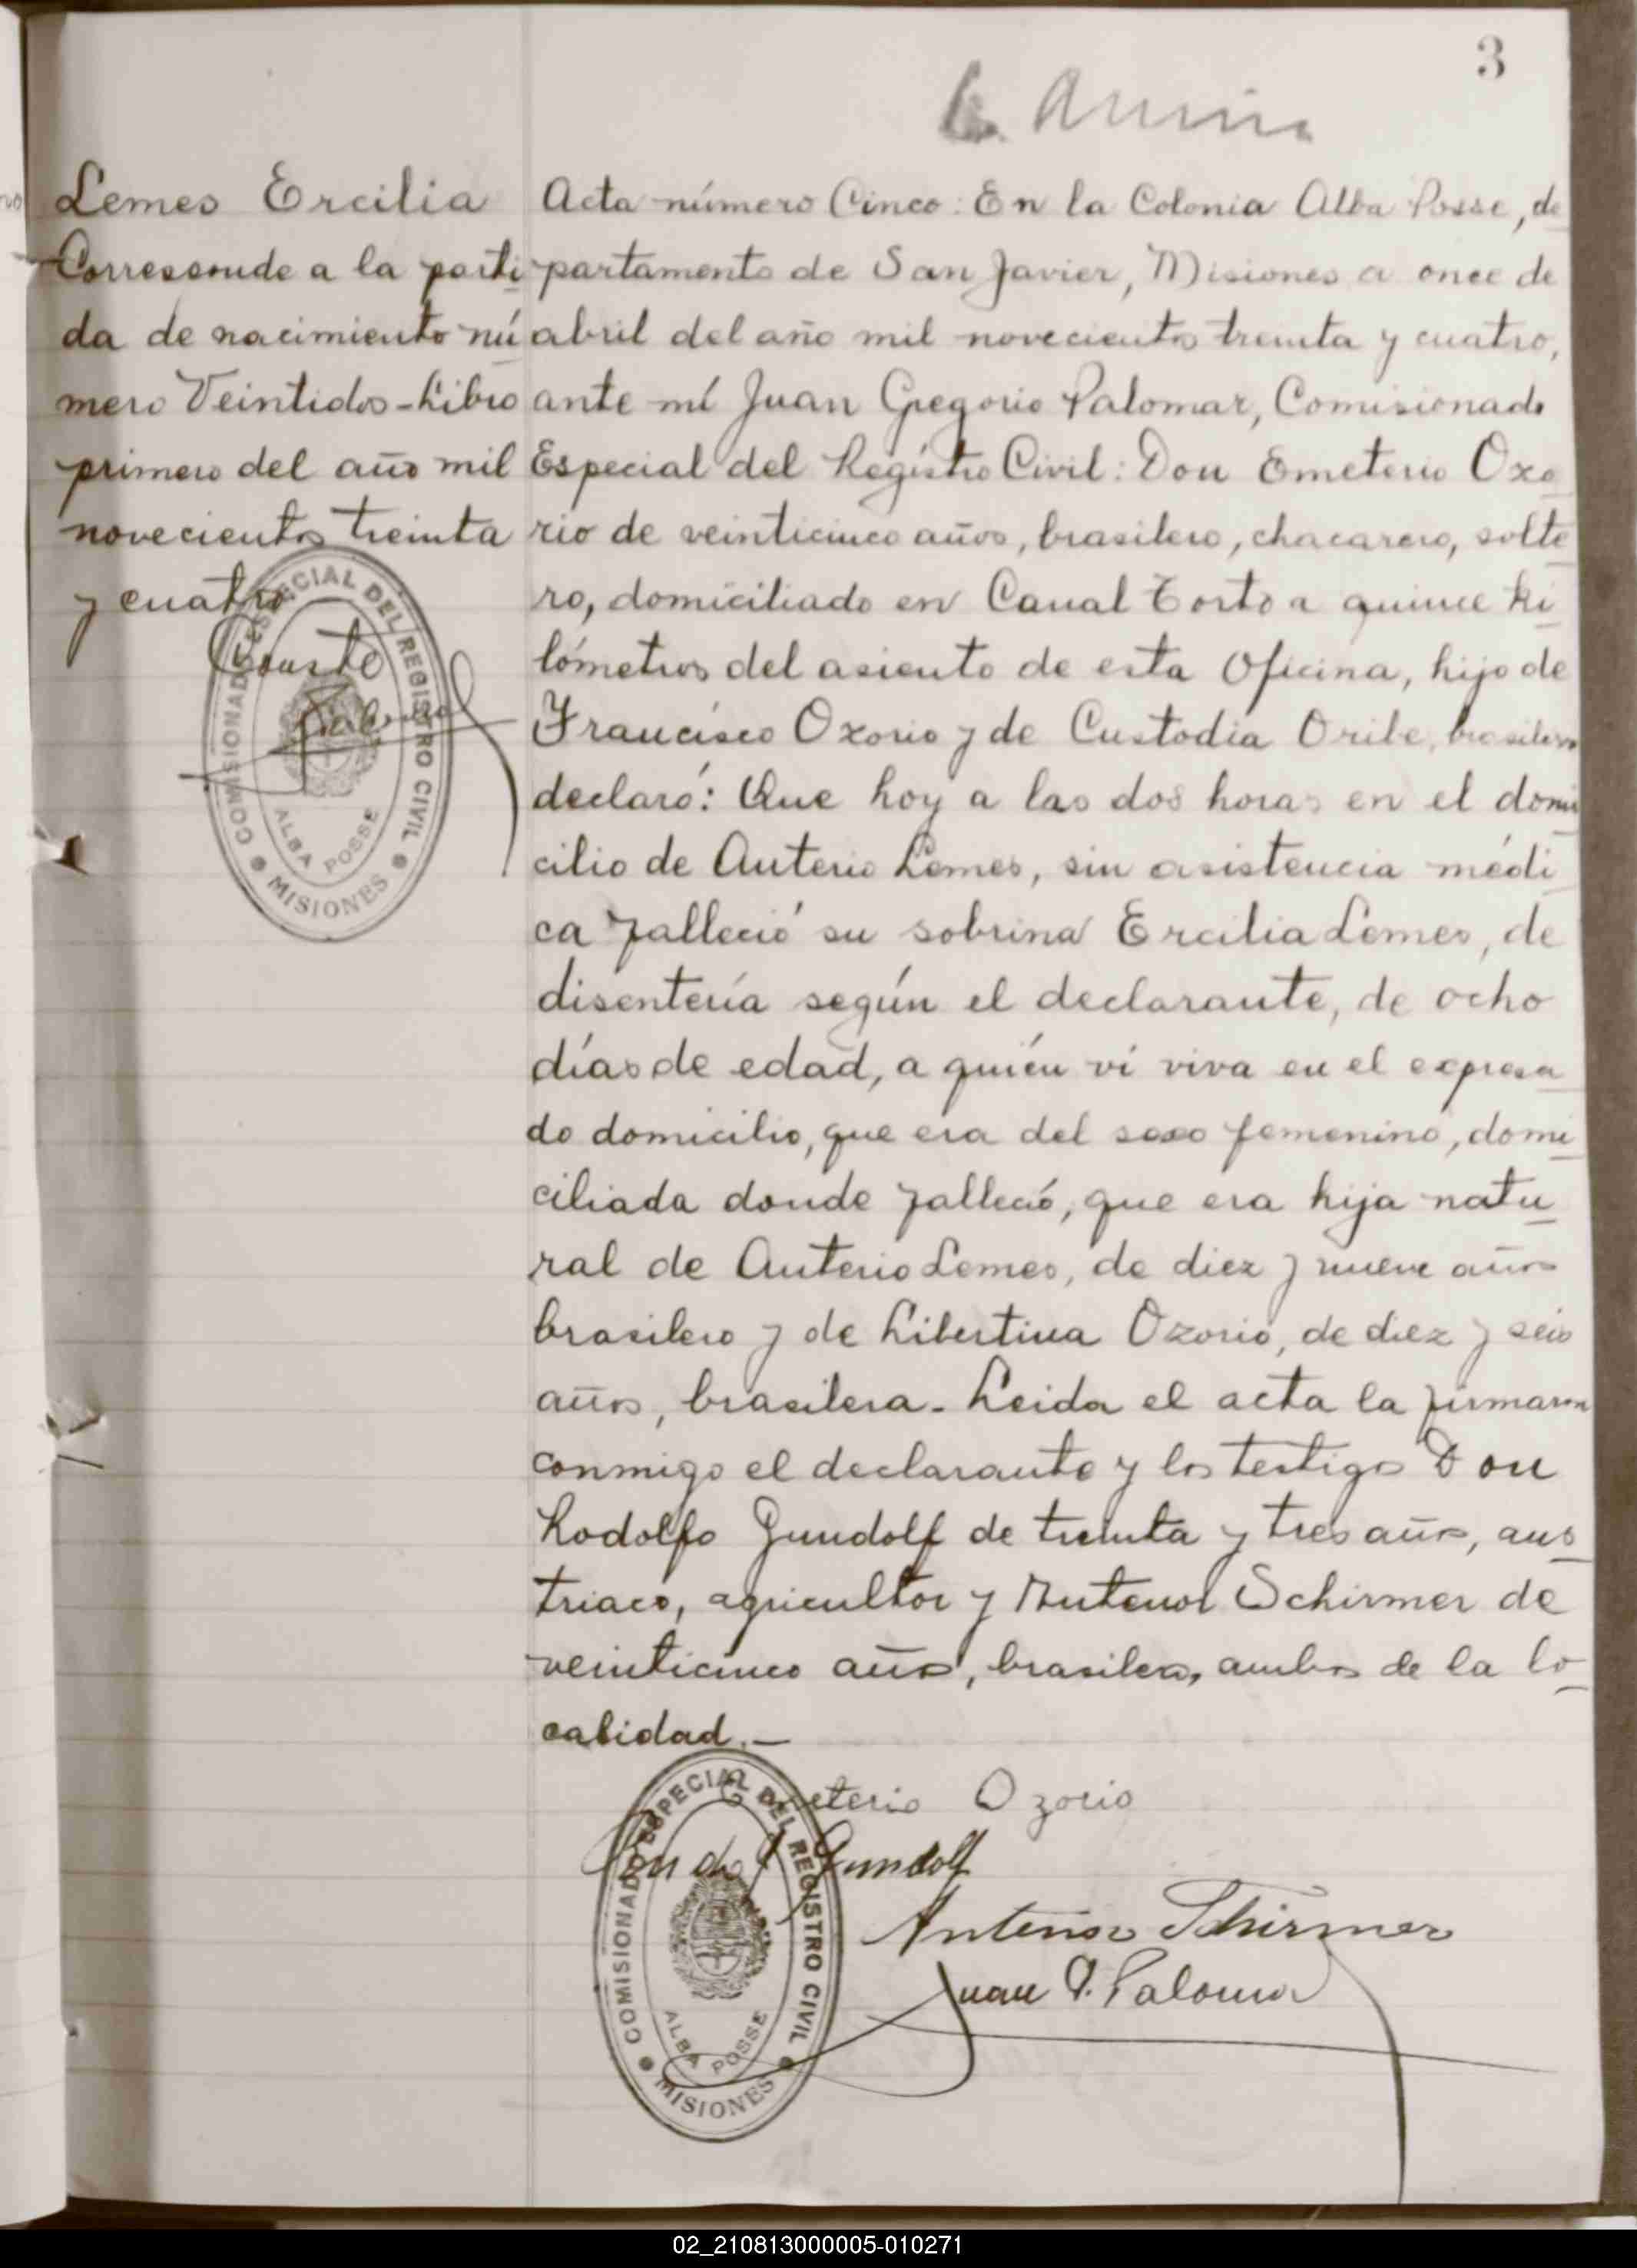 3
Lemes Ercilia
Corresponde a la parti
da de nacimiento nú
mero Veintidos - Libro
primero del año mil
novecientos treinta
y cuatro
Conste
COMISIONADO ESPECIAL DEL REGISTRO CIVIL
ALBA POSSE
MISIONES
Acta número Cinco: En la Colonia Alba Posse, de
partamento de San Javier, Misiones a once de
abril del año mil novecientos treinta y cuatro,
ante mí Juan Gregorio Palomar, Comisionado
Especial del Registro Civil: Don Emeterio Ozo
rio de veinticinco años, brasilero, chacarero, solte
ro, domiciliado en Canal Torto a quince ki
lómetros del asiento de esta Oficina, hijo de
Francisco Ozorio y de Custodia Oribe, brasileros
declaró: Que hoy a las dos horas en el domi
cilio de Anterio Lemes, sin asistencia médi
ca falleció su sobrina Ercilia Lemes, de
disentería según el declarante, de ocho
días de edad, a quién ví viva en el expresa
do domicilio, que era del sexo femenino, domi
ciliada donde falleció, que era hija natu
ral de Anterio Lemes, de diez y nueve años
brasilero y de Libertina Ozorio, de diez y seis
años, brasilera. Leida el acta la firmaron
conmigo el declarante y los testigos Don
Rodolfo Gundolf de treinta y tres años, aus
triaco, agricultor y Antenor Schirmer de
veinticinco años, brasilero, ambos de la lo
calidad.—
Emeterio Ozorio
Gundolf
Antenor Schirmer
Juan G. Palomar
COMISIONADO ESPECIAL DEL REGISTRO CIVIL
ALBA POSSE
MISIONES
02_210813000005-010271